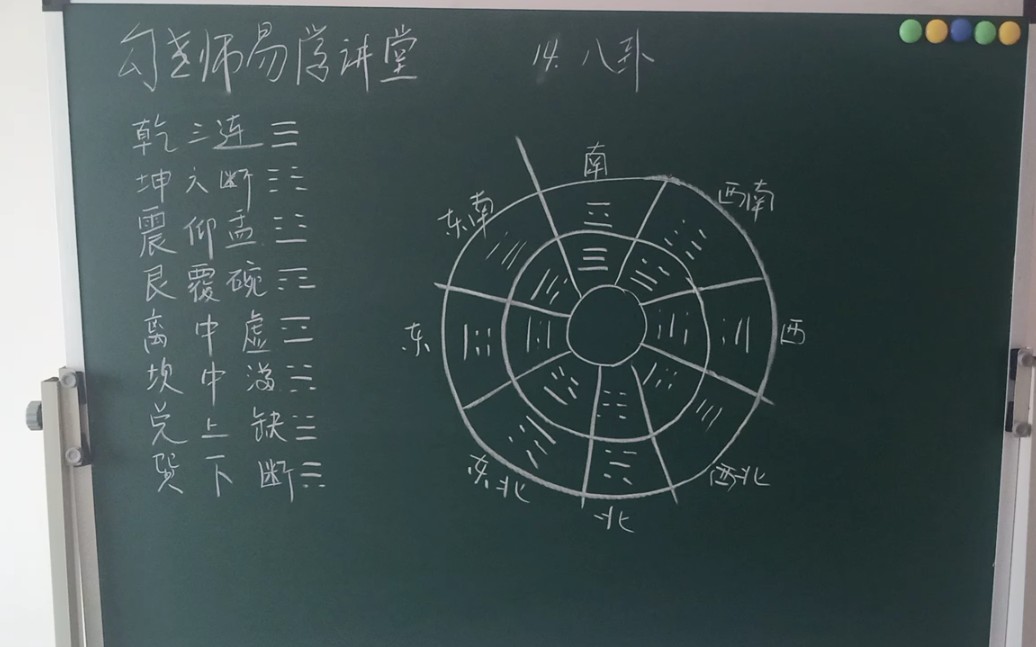 勾老师易学讲堂
14. 八卦
乾三连☰
坤六断☷
震仰盂☳
艮覆碗☶
离中虚☲
坎中满☵
兑上缺☱
巽下断☴
南
东南
西南
东
西
东北
西北
北